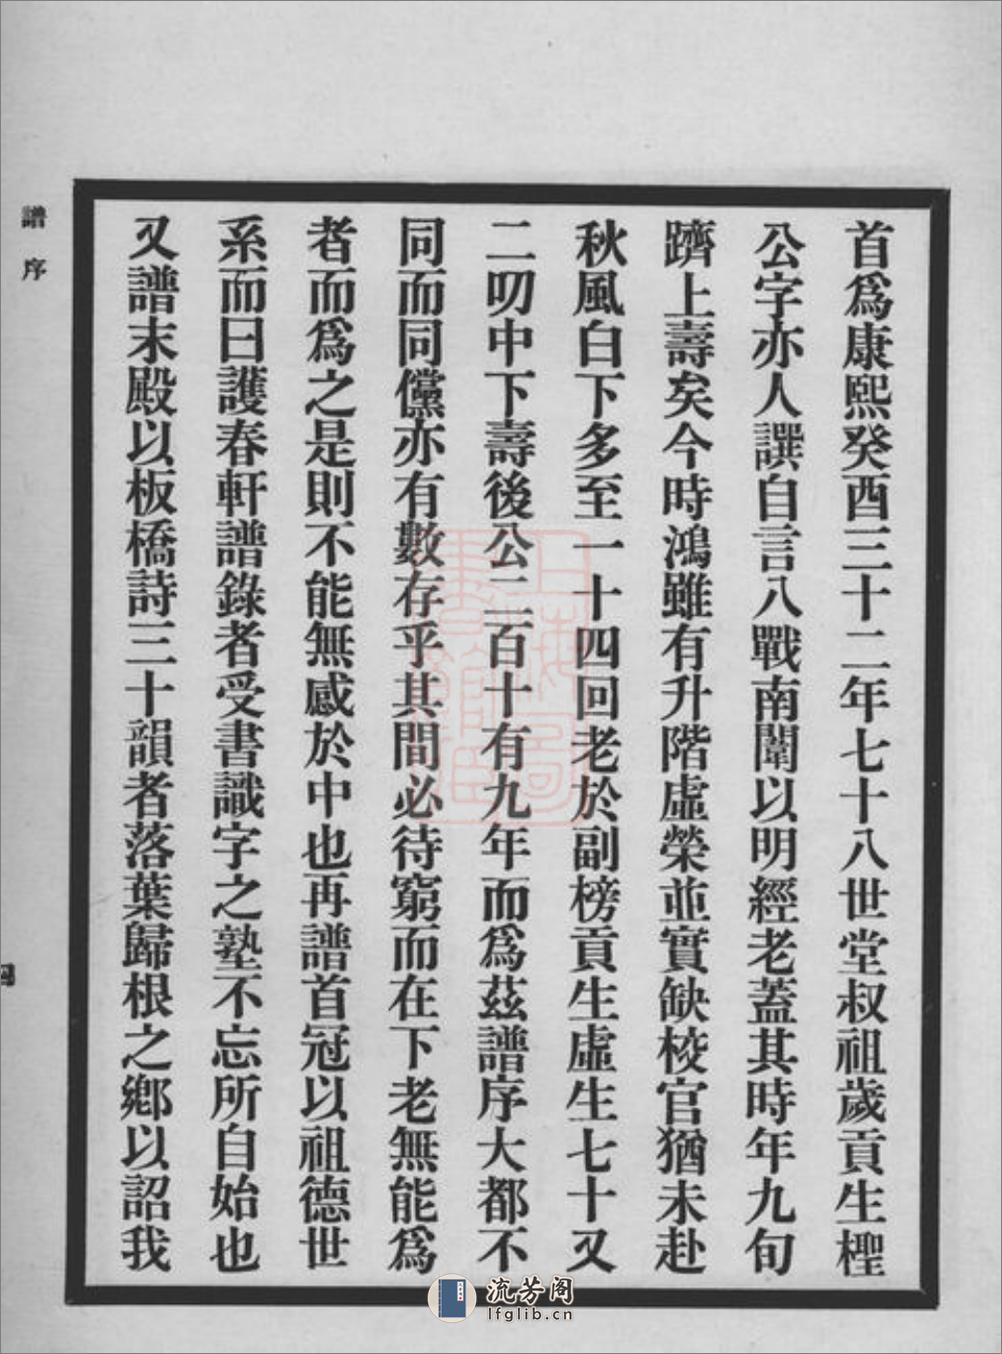 首爲康熙癸酉三十二年七十八世堂叔祖歲貢生檉
公字亦人譔自言八戰南闈以明經老蓋其時年九旬
躋上壽矣今時鴻雖有升階虛榮並實缺校官猶未赴
秋風白下多至一十四回老於副榜貢生虛生七十又
二叨中下壽後公二百十有九年而爲茲譜序大都不
同而同儻亦有數存乎其間必待窮而在下老無能爲
者而爲之是則不能無感於中也再譜首冠以祖德世
系而曰護春軒譜錄者受書識字之塾不忘所自始也
又譜末殿以板橋詩三十韻者落葉歸根之鄉以詔我
譜序
四
上海圖書館藏
流芳阁
lfglib.cn